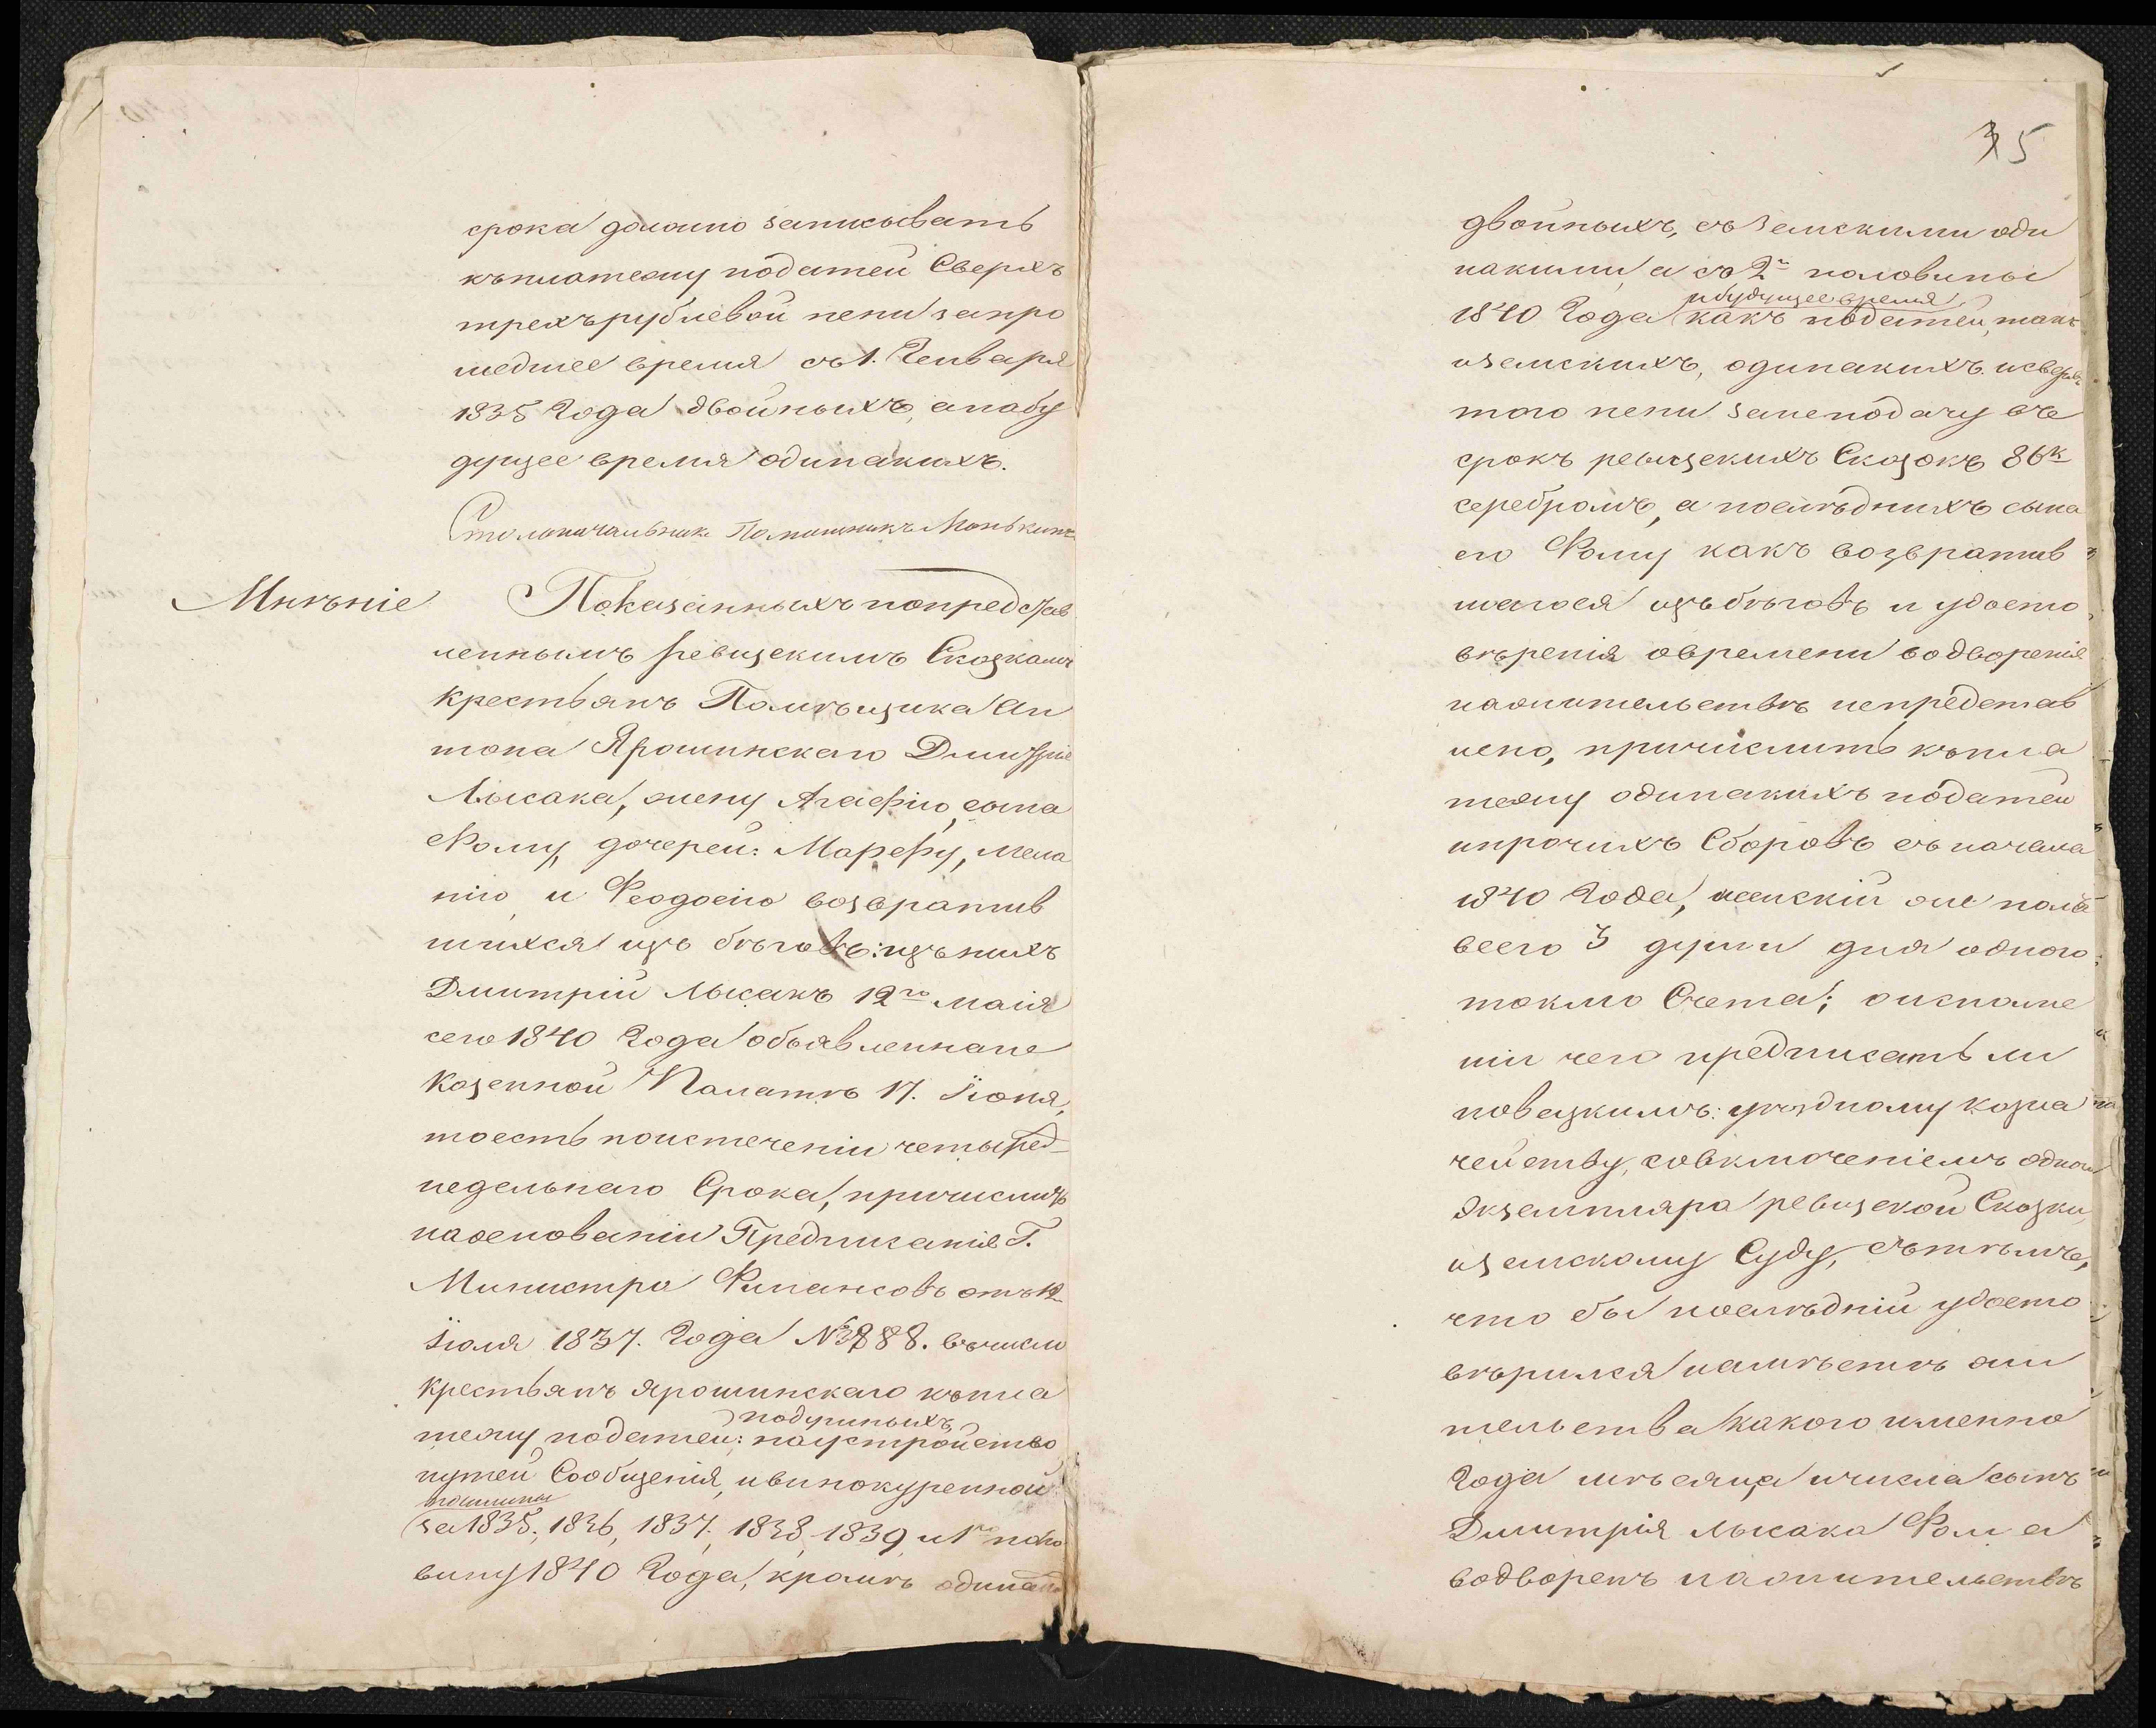 срока должно записывать
къ платежу податей Сверхъ
трехъ рублевой пени за про
шедшее время съ 1. Генваря
1835 Года двойныхъ, а на бу
дущее время одинакихъ.
Столоначальник. Помошникъ
Мнѣніе
Показанныхъ по представ
леннымъ ревизскимъ Сказкамъ
крестьянъ Помѣщика Ан
тона Ярошинскаго Дмитрія
Лысака, жену Агафію, сына
Фому, дочерей: Марфу, Мела
нію и Феодосію возвратив
шихся изъ бѣговъ: изъ нихъ
Дмитрій Лысакъ 12го маія
сего 1840 Года объявленнаго
Казенной Палатѣ 17. Іюня,
тоесть по истеченіи четырех
недельнаго Срока, причислить
на основаніи Предписанія Г.
Министра Финансовъ отъ
Іюля 1837. Года № 3888. въ число
крестьянъ Ярошинскаго къ пла
подушныхъ
тежу податей: на устройство
путей Сообщенія, и винокуренной
пошлины
за 1835, 1836, 1837, 1838, 1839 и 1ю поло
вину 1840 Года, кромѣ
35
двойныхъ, съ земскими оди
накими, а со 2й половины
и будущее время
1840 Года какъ податей, такъ
и земскихъ, одинакихъ. и сверхъ
того пени за неподачу въ
срокъ ревизскихъ Сказокъ 86 к
серебромъ, а послѣднихъ сына
его Фому какъ возвратив
шагося изъ бѣговъ и удосто
вѣренія о времени водворенія
на жительствѣ непредстав
лено, причислить къ пла
тежу одинакихъ податей
и прочихъ Сборовъ съ начала
1840 Года, женскій же полъ
всего 3 души для одного
токмо Счета; о исполне
ніи чего предписать Ли
повецкимъ: уѣздному казна
чейству, со включеніемъ одного
экземпляра ревизской Сказки,
и земскому Суду, съ тѣмъ,
что бы послѣдній удосто
вѣрился на мѣстѣ жи
тельства какого именно
Года мѣсяца и числа сынъ
Дмитрія Лысака Фома
водворенъ на жительствѣ